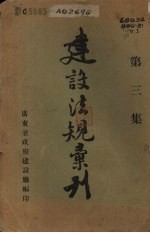 第三集
建設法規彙刊
廣東省政府建設廳編印
A02696